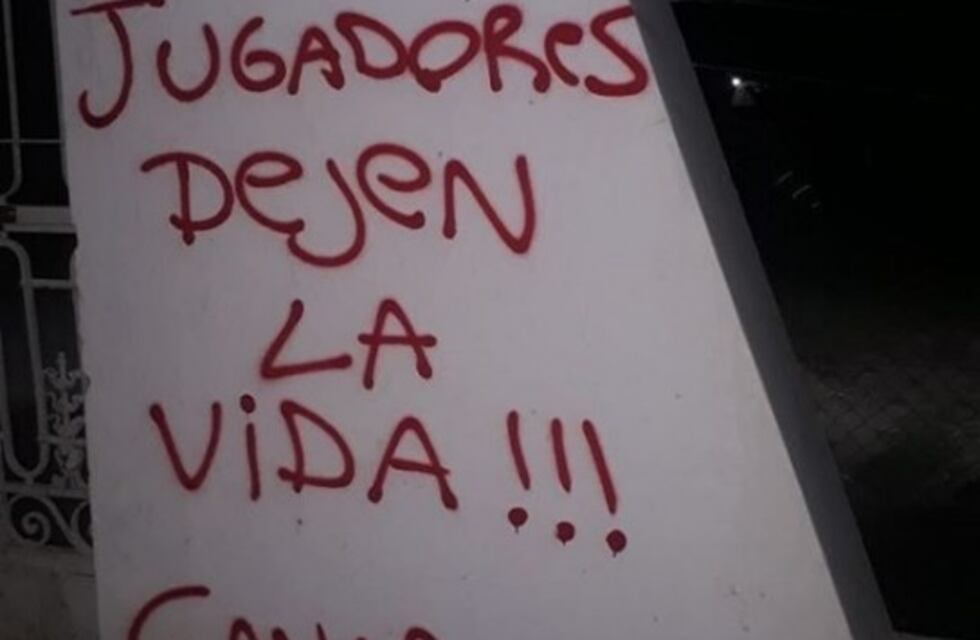 JUGADORES
DEJEN
LA
ViDA !!!